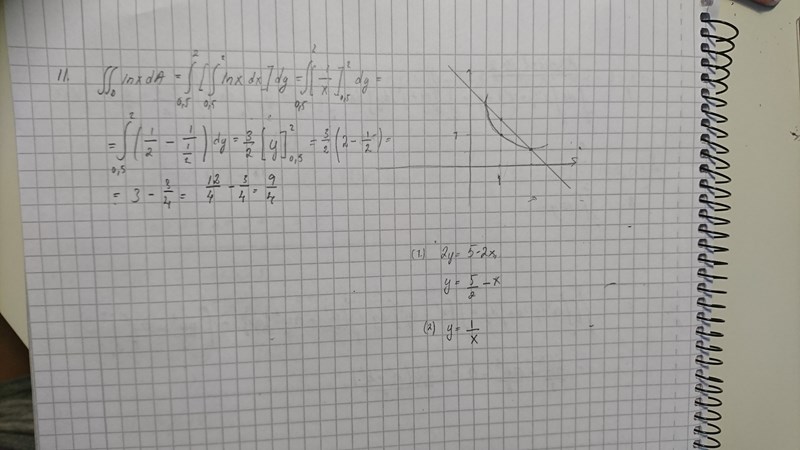 11. ∬_D ln x dA = ∫_{0,5}^{2} [ ∫_{0,5}^{2} ln x dx ] dy = ∫_{0,5}^{2} [ 1/x ]_{0,5}^{2} dy =
= ∫_{0,5}^{2} ( 1/2 - 1/(1/2) ) dy = 3/2 [ y ]_{0,5}^{2} = 3/2 ( 2 - 1/2 ) =
= 3 - 3/4 = 12/4 - 3/4 = 9/4
1
1
(1) 2y = 5-2x
y = 5/2 - x
(2) y = 1/x